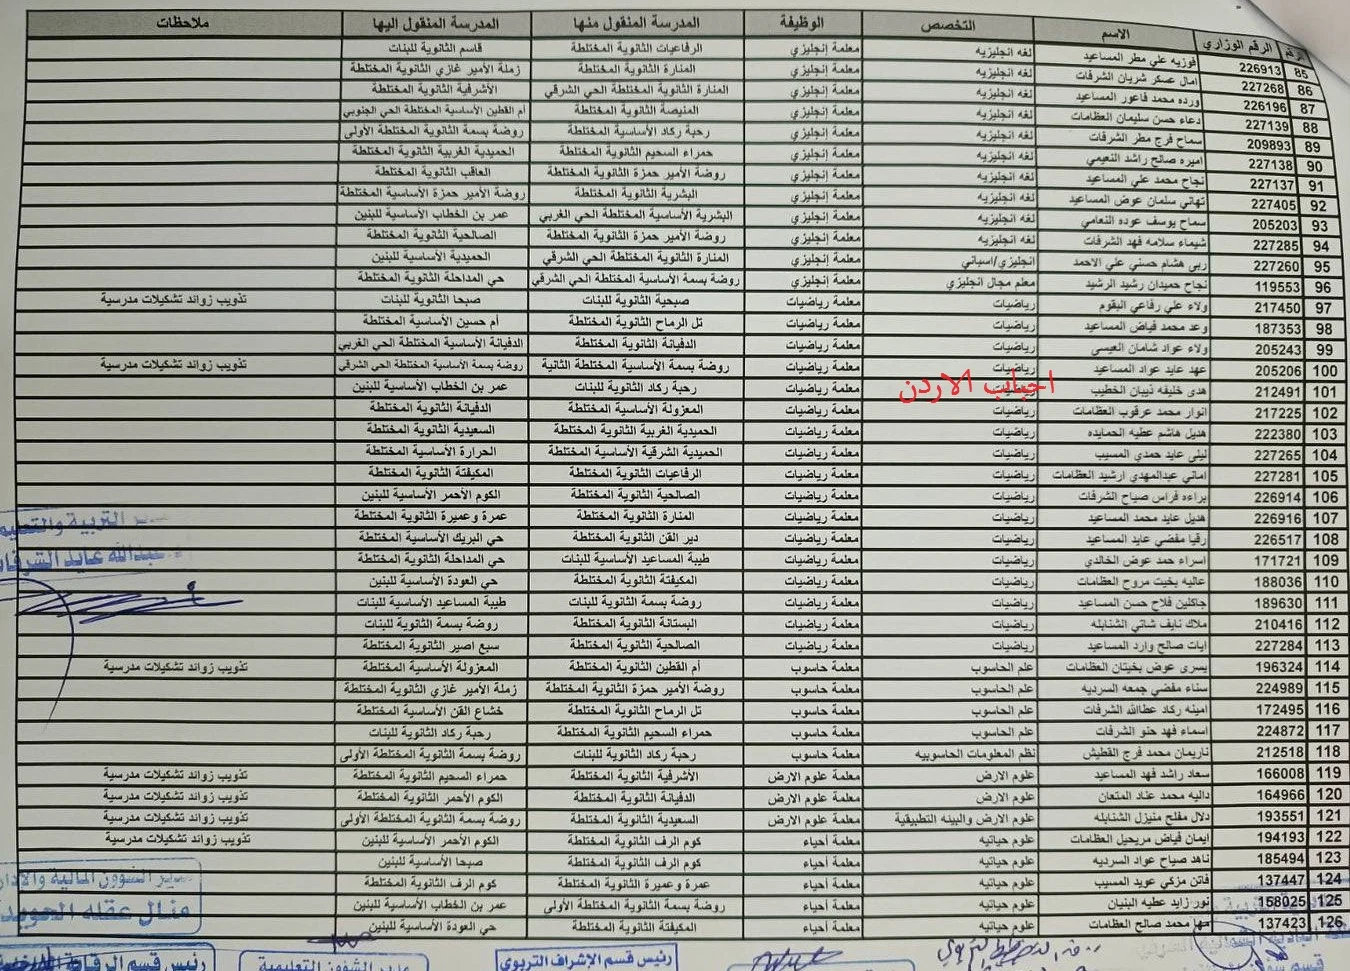 الرقم الرقم الوزاري الاسم التخصص الوظيفة المدرسة المنقول منها المدرسة المنقول اليها ملاحظات
85 226913 فوزيه علي مطر المساعيد لغه انجليزيه معلمة إنجليزي الرفاعيات الثانوية المختلطة قاسم الثانوية للبنات
86 227268 امال عسكر شريان الشرفات لغه انجليزيه معلمة إنجليزي المنارة الثانوية المختلطة زملة الأمير غازي الثانوية المختلطة
87 226196 ورده محمد فاعور المساعيد لغه انجليزيه معلمة إنجليزي المنارة الثانوية المختلطة الحي الشرقي الأشرفية الثانوية المختلطة
88 227139 دعاء حسن سليمان العظامات لغه انجليزيه معلمة إنجليزي المنيصة الثانوية المختلطة أم القطين الأساسية المختلطة الحي الجنوبي
89 209893 سماح فرج مطر الشرفات لغه انجليزيه معلمة إنجليزي رحبة ركاد الأساسية المختلطة روضة بسمة الثانوية المختلطة الأولى
90 227138 اميره صالح راشد النعيمي لغه انجليزيه معلمة إنجليزي حمراء السحيم الثانوية المختلطة الحميدية الغربية الثانوية المختلطة
91 227137 نجاح محمد علي المساعيد لغه انجليزيه معلمة إنجليزي روضة الأمير حمزة الثانوية المختلطة العاقب الثانوية المختلطة
92 227405 تهاني سلمان عوض المساعيد لغه انجليزيه معلمة إنجليزي البشرية الثانوية المختلطة روضة الأمير حمزة الأساسية المختلطة
93 205203 سماح يوسف عوده النعامي لغه انجليزيه معلمة إنجليزي البشرية الأساسية المختلطة الحي الغربي عمر بن الخطاب الأساسية للبنين
94 227285 شيماء سلامه فهد الشرفات لغه انجليزيه معلمة إنجليزي روضة الأمير حمزة الثانوية المختلطة الصالحية الثانوية المختلطة
95 227260 ربى هشام حسني علي الاحمد انجليزي/اسباني معلمة إنجليزي المنارة الثانوية المختلطة الحي الشرقي الحميدية الأساسية للبنين
96 119553 نجاح حميدان رشيد الرشيد معلم مجال انجليزي معلمة إنجليزي روضة بسمة الأساسية المختلطة الحي الشرقي حي المداحلة الثانوية المختلطة
97 217450 ولاء علي رفاعي البقوم رياضيات معلمة رياضيات صبحية الثانوية للبنات صبحا الثانوية للبنات تذويب زوائد تشكيلات مدرسية
98 187353 وعد محمد فياض المساعيد رياضيات معلمة رياضيات تل الرماح الثانوية المختلطة أم حسين الأساسية المختلطة
99 205243 ولاء عواد شامان العيسي رياضيات معلمة رياضيات الدفيانة الثانوية المختلطة الدفيانة الأساسية المختلطة الحي الغربي
100 205206 عهد عايد عواد المساعيد رياضيات معلمة رياضيات روضة بسمة الأساسية المختلطة الثانية روضة بسمة الأساسية المختلطة الحي الشرقي تذويب زوائد تشكيلات مدرسية
احباب الاردن
101 212491 هدى خليفه ذيبان الخطيب رياضيات معلمة رياضيات رحبة ركاد الثانوية للبنات عمر بن الخطاب الأساسية للبنين
102 217225 انوار محمد عرقوب العظامات رياضيات معلمة رياضيات المعزولة الأساسية المختلطة الدفيانة الثانوية المختلطة
103 222380 هديل هاشم عطيه الحمايده رياضيات معلمة رياضيات الحميدية الغربية الثانوية المختلطة السعيدية الثانوية المختلطة
104 227265 ليلى عايد حمدي المسيب رياضيات معلمة رياضيات الحميدية الشرقية الأساسية المختلطة الحرارة الأساسية المختلطة
105 227281 اماني عبدالمهدي ارشيد العظامات رياضيات معلمة رياضيات الرفاعيات الثانوية المختلطة المكيفتة الثانوية المختلطة
106 226914 براءه فراس صياح الشرفات رياضيات معلمة رياضيات الصالحية الثانوية المختلطة الكوم الأحمر الأساسية للبنين
107 226916 هديل عايد محمد المساعيد رياضيات معلمة رياضيات المنارة الثانوية المختلطة عمرة وعميرة الثانوية المختلطة
108 226517 رقيا مفضي عايد المساعيد رياضيات معلمة رياضيات دير القن الثانوية المختلطة حي البريك الأساسية المختلطة
109 171721 اسراء حمد عوض الخالدي رياضيات معلمة رياضيات طيبة المساعيد الأساسية للبنات حي المداحلة الثانوية المختلطة
110 188036 عاليه بخيت مروح العظامات رياضيات معلمة رياضيات المكيفتة الثانوية المختلطة حي العودة الأساسية للبنين
111 189630 جاكلين فلاح حسن المساعيد رياضيات معلمة رياضيات روضة بسمة الثانوية للبنات طيبة المساعيد الأساسية للبنات
112 210416 ملاك نايف شاتي الشنابله رياضيات معلمة رياضيات البستانة الثانوية المختلطة روضة بسمة الثانوية للبنات
113 227284 ايات صالح وارد المساعيد رياضيات معلمة رياضيات الصالحية الثانوية المختلطة سبع اصير الثانوية المختلطة
114 196324 يسرى عوض بخيتان العظامات علم الحاسوب معلمة حاسوب أم القطين الثانوية المختلطة المعزولة الأساسية المختلطة تذويب زوائد تشكيلات مدرسية
115 224989 سناء مفضي جمعه السرديه علم الحاسوب معلمة حاسوب روضة الأمير حمزة الثانوية المختلطة زملة الأمير غازي الثانوية المختلطة
116 172495 امينه ركاد عطاالله الشرفات علم الحاسوب معلمة حاسوب تل الرماح الثانوية المختلطة خشاع القن الأساسية المختلطة
117 224872 اسماء فهد حنو الشرفات علم الحاسوب معلمة حاسوب حمراء السحيم الثانوية المختلطة رحبة ركاد الثانوية للبنات
118 212518 ناريمان محمد فرج القطيش نظم المعلومات الحاسوبيه معلمة حاسوب رحبة ركاد الثانوية للبنات روضة بسمة الثانوية المختلطة الأولى
119 166008 سعاد راشد فهد المساعيد علوم الارض معلمة علوم الارض الأشرفية الثانوية المختلطة حمراء السحيم الثانوية المختلطة تذويب زوائد تشكيلات مدرسية
120 164966 داليه محمد عناد المتعان علوم الارض معلمة علوم الارض الدفيانة الثانوية المختلطة الكوم الأحمر الثانوية المختلطة تذويب زوائد تشكيلات مدرسية
121 193551 دلال مفلح منيزل الشنابله علوم الارض والبيئه التطبيقية معلمة علوم الارض السعيدية الثانوية المختلطة روضة بسمة الثانوية المختلطة الأولى تذويب زوائد تشكيلات مدرسية
122 194193 ايمان فياض مريحيل العظامات علوم حياتيه معلمة أحياء كوم الرف الثانوية المختلطة الكوم الأحمر الأساسية للبنين تذويب زوائد تشكيلات مدرسية
123 185494 ناهد صياح عواد السرديه علوم حياتيه معلمة أحياء كوم الرف الثانوية المختلطة صبحا الأساسية للبنين
124 137447 فاتن مزكي عويد المسيب علوم حياتيه معلمة أحياء عمرة وعميرة الثانوية المختلطة كوم الرف الثانوية المختلطة
125 158025 نور زايد عطيه البنيان علوم حياتيه معلمة أحياء روضة بسمة الثانوية المختلطة الأولى عمر بن الخطاب الأساسية للبنين
126 137423 مها محمد صالح العظامات علوم حياتيه معلمة أحياء المكيفتة الثانوية المختلطة حي العودة الأساسية للبنين
التربية والتعليم
عبدالله عايد الشرفات
مدير الشؤون المالية والادارية
منال عقله
رئيس قسم الإشراف التربوي
مدير الشؤون التعليمية
رئيس قسم